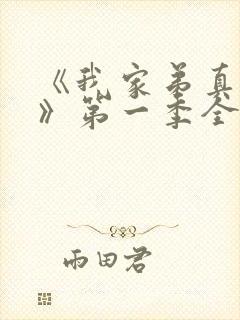 《我家弟真
》第一季全
雨田君